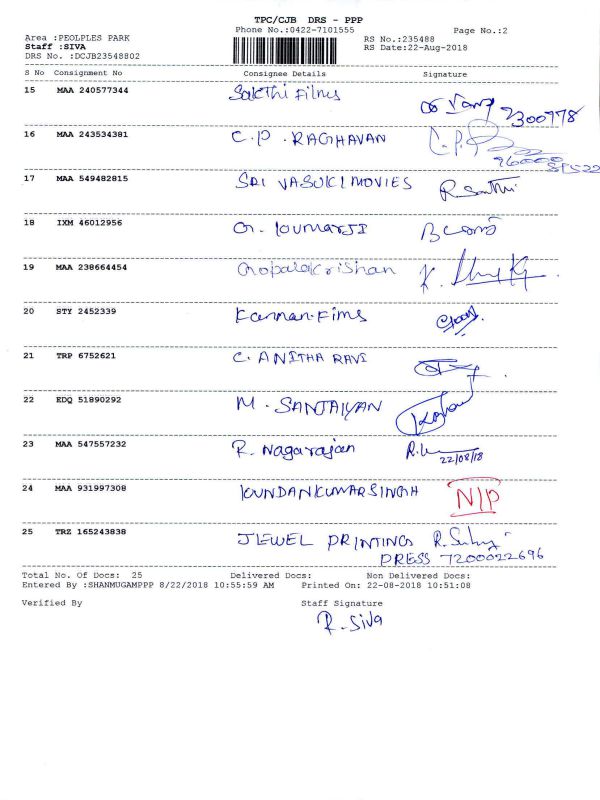 TPC/CJB DRS - PPP
Phone No.:0422-7101555 Page No.:2
Area :PEOLPLES PARK RS No.:235488
Staff :SIVA RS Date:22-Aug-2018
DRS No. :DCJB23548802
S No Consignment No Consignee Details Signature
15 MAA 240577344 Sakthi Films
9300778
16 MAA 243534381 C.P. RAGHAVAN C.P.
17 MAA 549482815 SRI VASUKI MOVIES
18 IXM 46012956 G. KUMARJI
19 MAA 238664454 Gopalakrishan K.
20 STY 2452339 Kannan.Fims
21 TRP 6752621 C. ANITHA RAVI
22 EDQ 51890292 M. SANJAIYAN
23 MAA 547557232 R. Nagarajan
22/08/18
24 MAA 931997308 KUNDANKUMARSINGH N/P
25 TRZ 165243838 JEWEL PRINTING
PRESS 7200022696
Total No. Of Docs: 25 Delivered Docs: Non Delivered Docs:
Entered By :SHANMUGAMPPP 8/22/2018 10:55:59 AM Printed On: 22-08-2018 10:51:08
Verified By Staff Signature
R. Siva